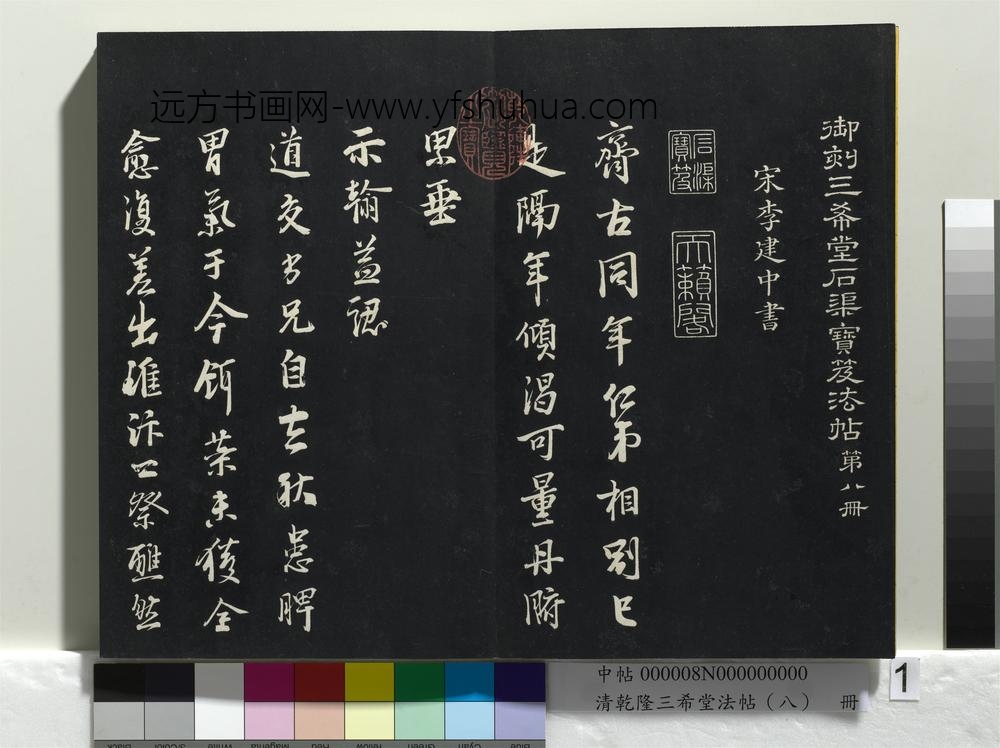 御刻三希堂石渠寶笈法帖第八冊
宋李建中書
石渠寶笈
天籟閣
齊古同年仁弟相別已
是隔年傾渴可量丹腑
思垂
示翰益認
道友于兄自去秋患脾
胃氣于今餌藥未獲全
愈復差出雖汴口祭醮然
远方书画网-www.yfshuhua.com
中帖 000008N000000000
清乾隆三希堂法帖（八） 冊
1
Black
3/Color
White
Magenta
Red
Yellow
Green
Cyan
Blue